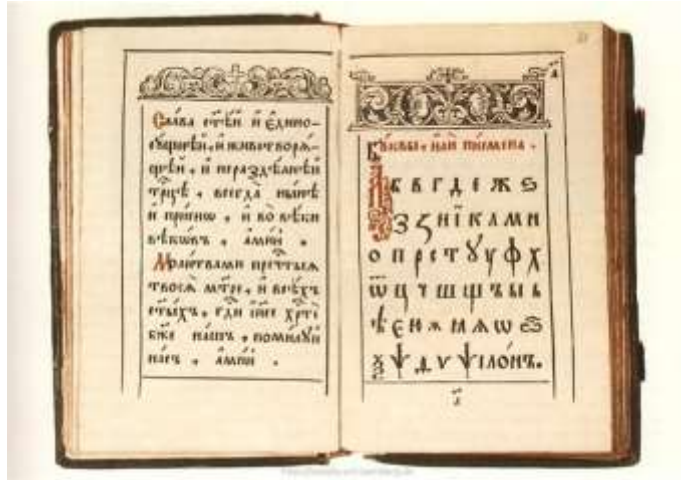 Сла́ва ст҃ѣ́й и҆ є҆дино-
сꙋ́щнѣй, и҆ животворѧ́-
щѣй, и҆ нераздѣ́лнѣй
трⷪ҇цѣ , всегда̀ ны́нѣ
и҆ при́снѡ , и҆ во̀ вѣ́ки
вѣкѡ́въ , а҆ми́нь .
Моли́твами пречⷭ҇тыѧ
твоеѧ̀ мт҃ре , и҆ всѣ́хъ
ст҃ы́хъ , гдⷭ҇и і҆и҃се хрⷭ҇тѐ
бж҃е на́шъ , поми́лꙋй
на́съ , а҆ми́нь .
Бꙋ́квы , и҆лѝ пи́смена .
А Б В Г Д Е Ж Ѕ
З И Ї К Л М Н
О П Р С Т Ꙋ У Ф Х
Ѿ Ц Ч Ш Щ Ъ Ы Ь
Ѣ Є Ю Ѫ Ѧ Ѡ
Ѯ Ѱ Ѵ